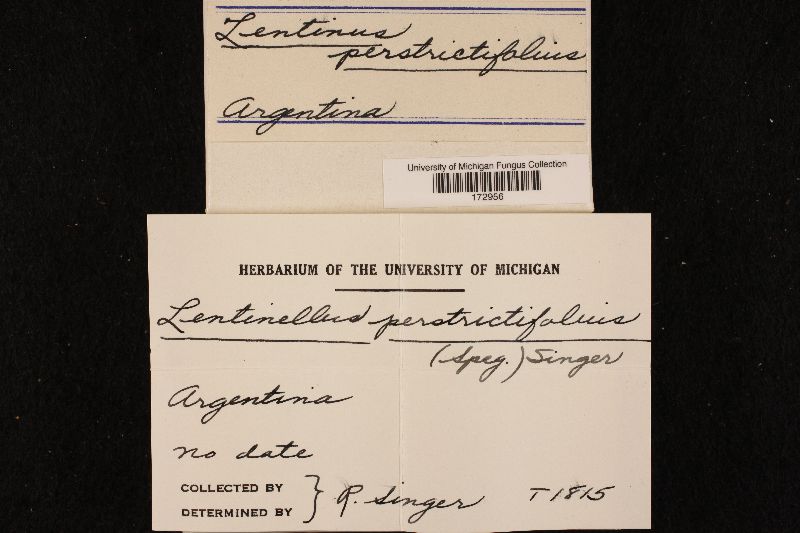 Lentinus
perstrictifolius
Argentina
University of Michigan Fungus Collection
172956
HERBARIUM OF THE UNIVERSITY OF MICHIGAN
Lentinellus perstrictifolius
(Speg.) Singer
Argentina
no date
COLLECTED BY
DETERMINED BY } R. Singer T 1815